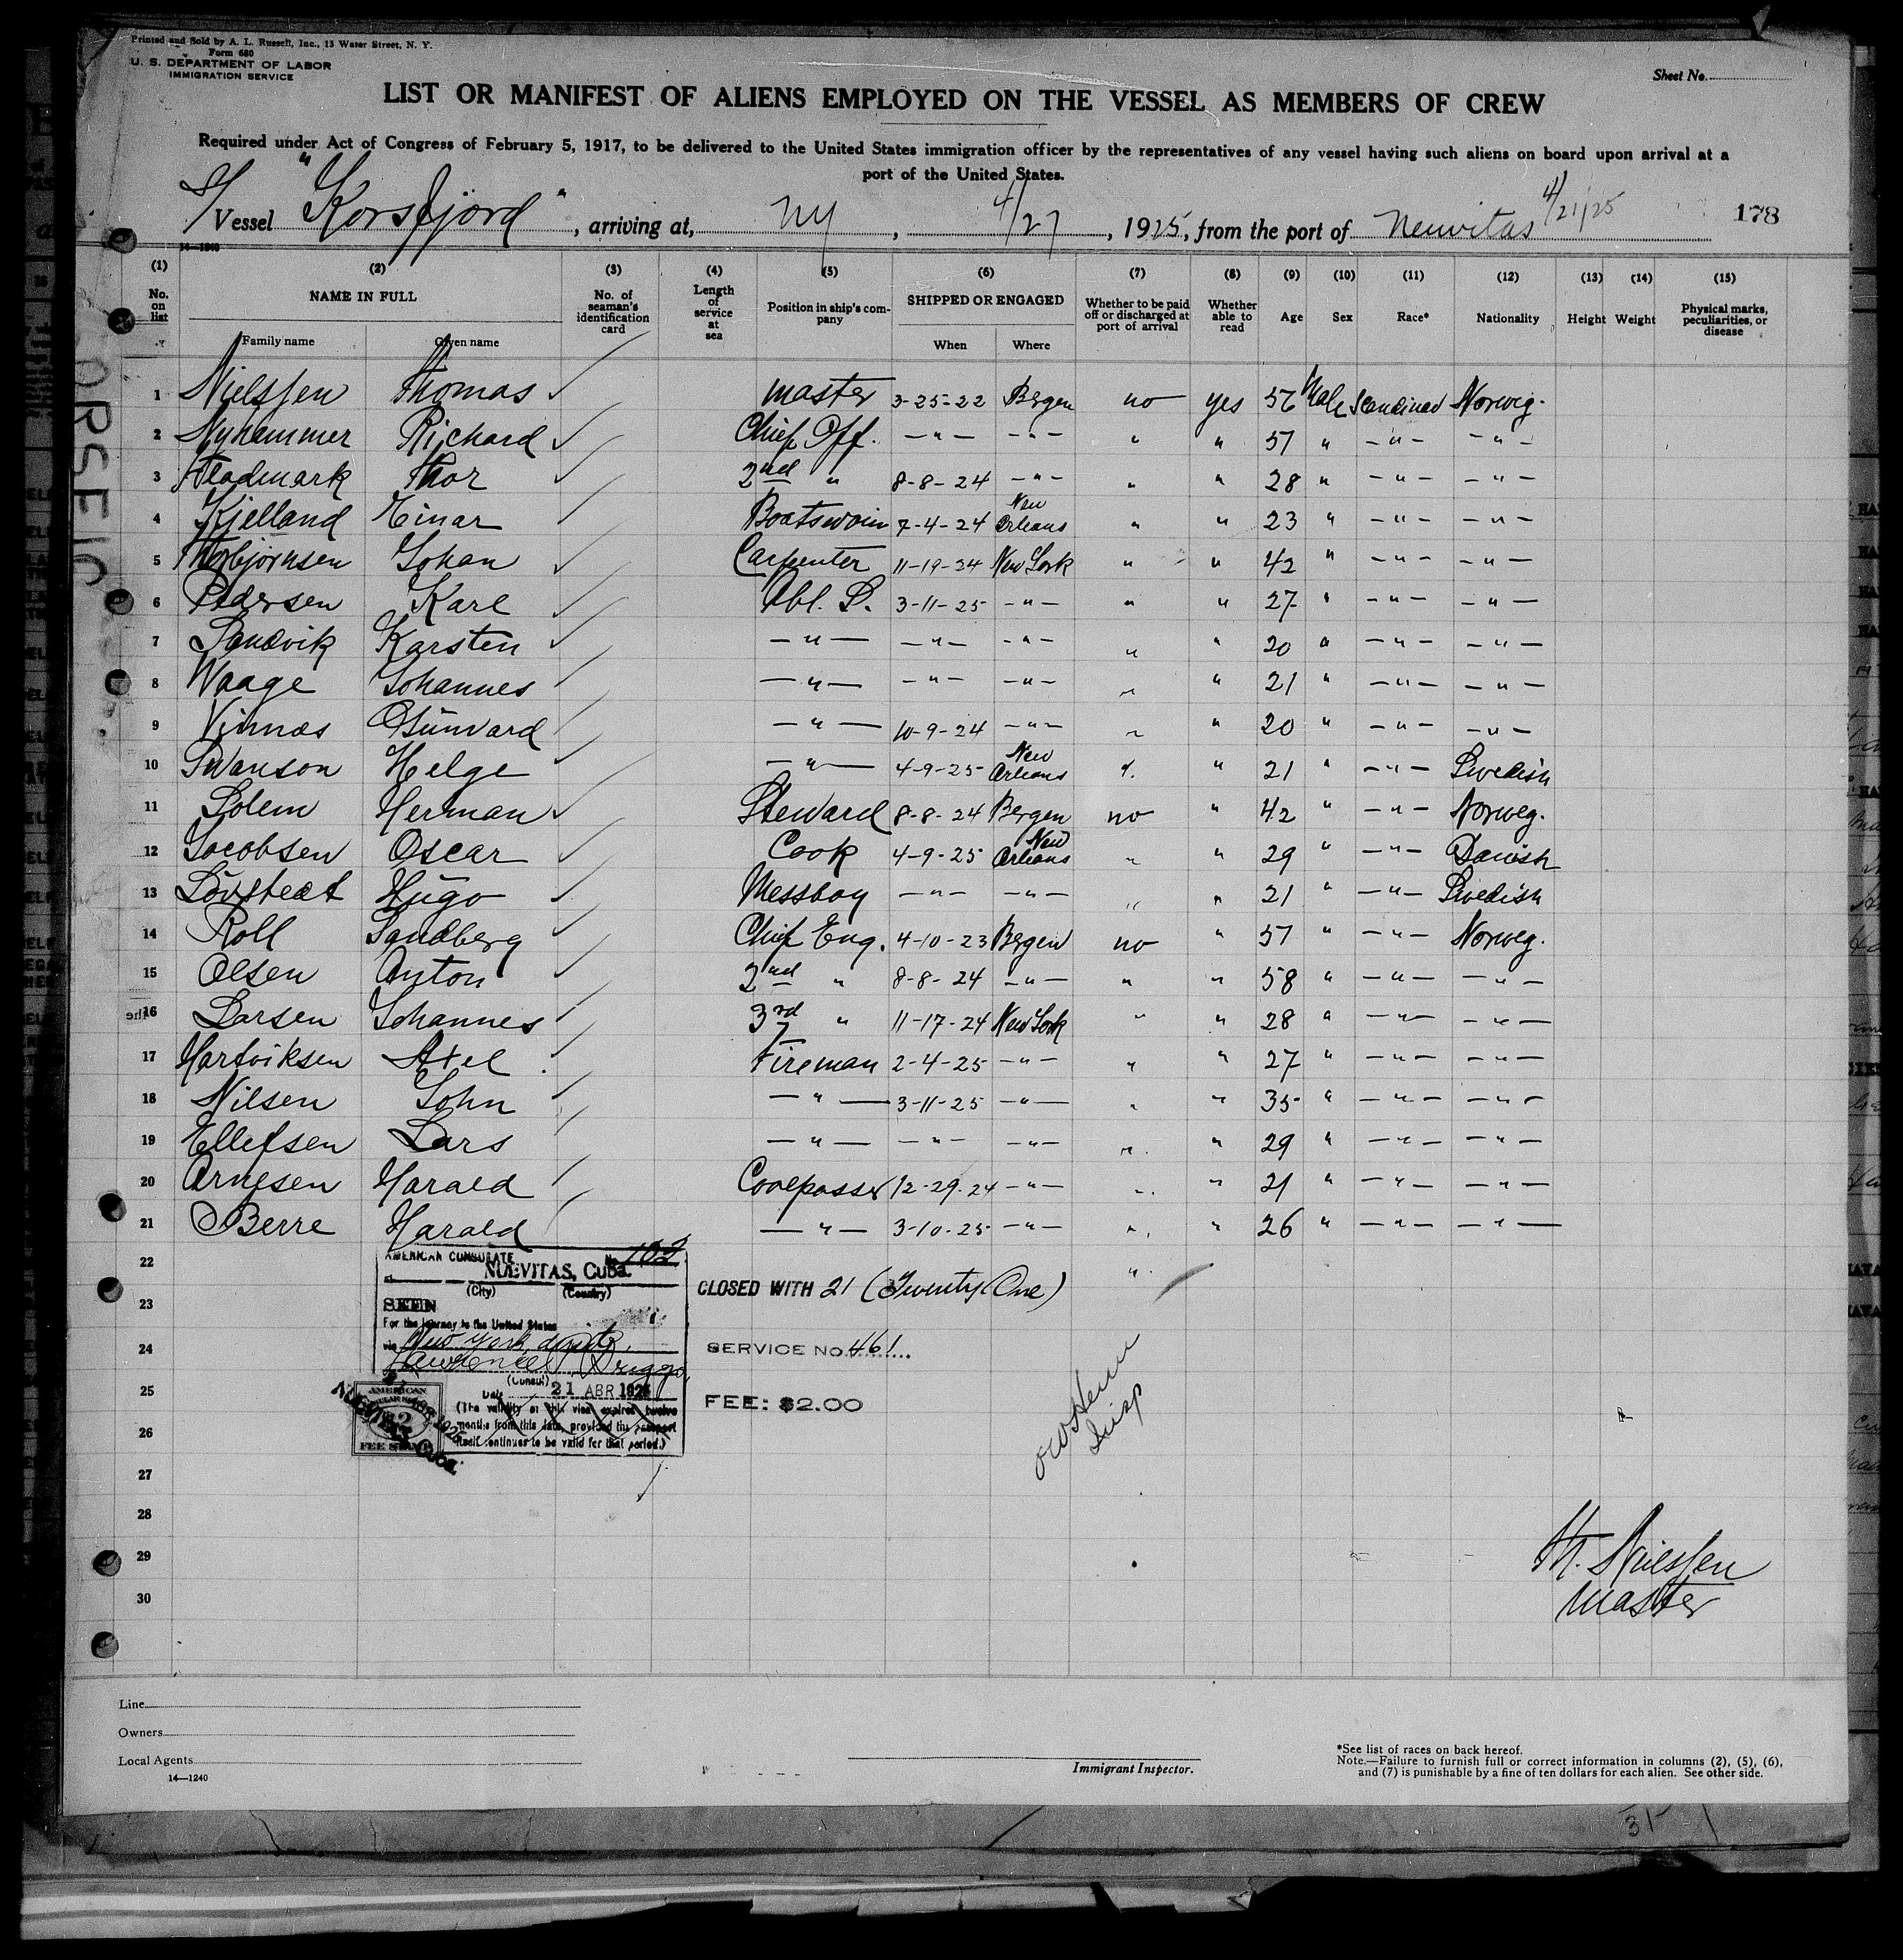 Printed and Sold by A. L. Russell, Inc., 13 Water Street, N. Y.
Form 680
U. S. DEPARTMENT OF LABOR
IMMIGRATION SERVICE
Sheet No.
LIST OR MANIFEST OF ALIENS EMPLOYED ON THE VESSEL AS MEMBERS OF CREW
Required under Act of Congress of February 5, 1917, to be delivered to the United States immigration officer by the representatives of any vessel having such aliens on board upon arrival at a
port of the United States.
S/ Vessel "Korsfjord", arriving at, NY, 4/27, 1925, from the port of Neuvitas 4/21/25 178
14—1240
(1) (2) (3) (4) (5) (6) (7) (8) (9) (10) (11) (12) (13) (14) (15)
No. on list NAME IN FULL No. of seaman's identification card Length of service at sea Position in ship's company SHIPPED OR ENGAGED Whether to be paid off or discharged at port of arrival Whether able to read Age Sex Race* Nationality Height Weight Physical marks, peculiarities, or disease
Family name Given name When Where
1 Nielssen Thomas master 3-25-22 Bergen no yes 56 Male Scandinav Norweg.
2 Nyhammer Richard Chief Off. —"— —"— " " 57 " —"— —"—
3 Hladmark Thor 2nd " 8-8-24 —"— " " 28 " —"— —"—
4 Kjelland Einar Boatswain 7-4-24 New Orleans " " 23 " —"— —"—
5 Thorbjørnsen Johan Carpenter 11-19-24 New York " " 42 " —"— —"—
6 Pedersen Karl Abl. S. 3-11-25 —"— " " 27 " —"— —"—
7 Sandvik Karsten —"— —"— —"— " " 20 " —"— —"—
8 Waage Johannes —"— —"— —"— " " 21 " —"— —"—
9 Vinnæs Gunvard —"— 10-9-24 —"— " " 20 " —"— —"—
10 Swanson Helge —"— 4-9-25 New Orleans " 21 " —"— Swedish
11 Solem Herman Steward 8-8-24 Bergen no " 42 " —"— Norweg.
12 Jacobsen Oscar Cook 4-9-25 New Orleans " " 29 " —"— Danish
13 Lövstedt Hugo Messboy —"— —"— " " 21 " —"— Swedish
14 Roll Sandberg Chief Eng. 4-10-23 Bergen no " 57 " —"— Norweg.
15 Olsen Anton 2nd " 8-8-24 —"— " " 58 " —"— —"—
16 Larsen Johannes 3rd " 11-17-24 New York " " 28 " —"— —"—
17 Hartviksen Axel Fireman 2-4-25 —"— " " 27 " —"— —"—
18 Nilsen John —"— 3-11-25 —"— " " 35 " —"— —"—
19 Ellefsen Lars —"— —"— —"— " " 29 " —"— —"—
20 Arnesen Harald Coalpasser 12-29-24 —"— " " 21 " —"— —"—
21 Berre Harald —"— 3-10-25 —"— " " 26 " —"— —"—
22
23
24
25
26
27
28
29
30
AMERICAN CONSULATE No. 102
at NUEVITAS, Cuba.
(City) (Country)
SEEN
For the journey to the United States
via New York, direct
(Consul)
Date 21 ABR 1925
(The validity of this visa expires twelve
months from this date, provided the passport
itself continues to be valid for that period.)
AMERICAN
2
FEE STAMP
NUEVITAS, Cuba.
CLOSED WITH 21 (Twenty One)
SERVICE No. 461
FEE: $2.00
Insp
Th. Nielssen
master
Line
Owners
Local Agents
14—1240
Immigrant Inspector.
*See list of races on back hereof.
Note.—Failure to furnish full or correct information in columns (2), (5), (6),
and (7) is punishable by a fine of ten dollars for each alien. See other side.